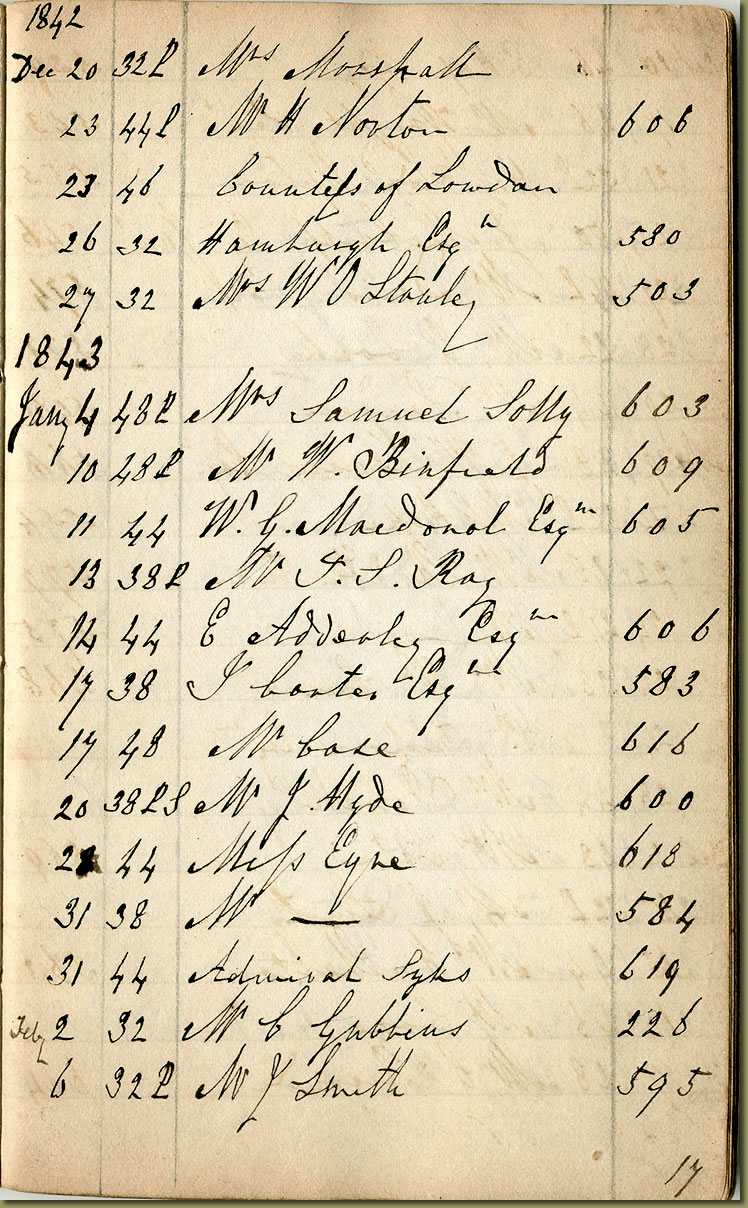 1842
Dec 20 32P Mrs Marshall
23 44P Mr H Norton 606
23 46 Countess of Lowdan
26 32 Hamburgh Esqr 580
27 32 Mrs W O Stanley 503
1843
Jany 4 48P Mrs Samuel Solly 603
10 48P Mr W. Binfield 609
11 44 W. G. Macdonal Esqre 605
13 38P Mr F. S. Ray
14 44 E Adderley Esqre 606
17 38 J Carter Esqre 583
17 48 Mr Case 616
20 38PS Mr J. Hyde 600
44 Miss Eyre 618
31 38 Mr — 584
31 44 Admiral Syks 619
Feby 2 32 Mr C Gubbins 226
6 32P Mr J Smith 595
17